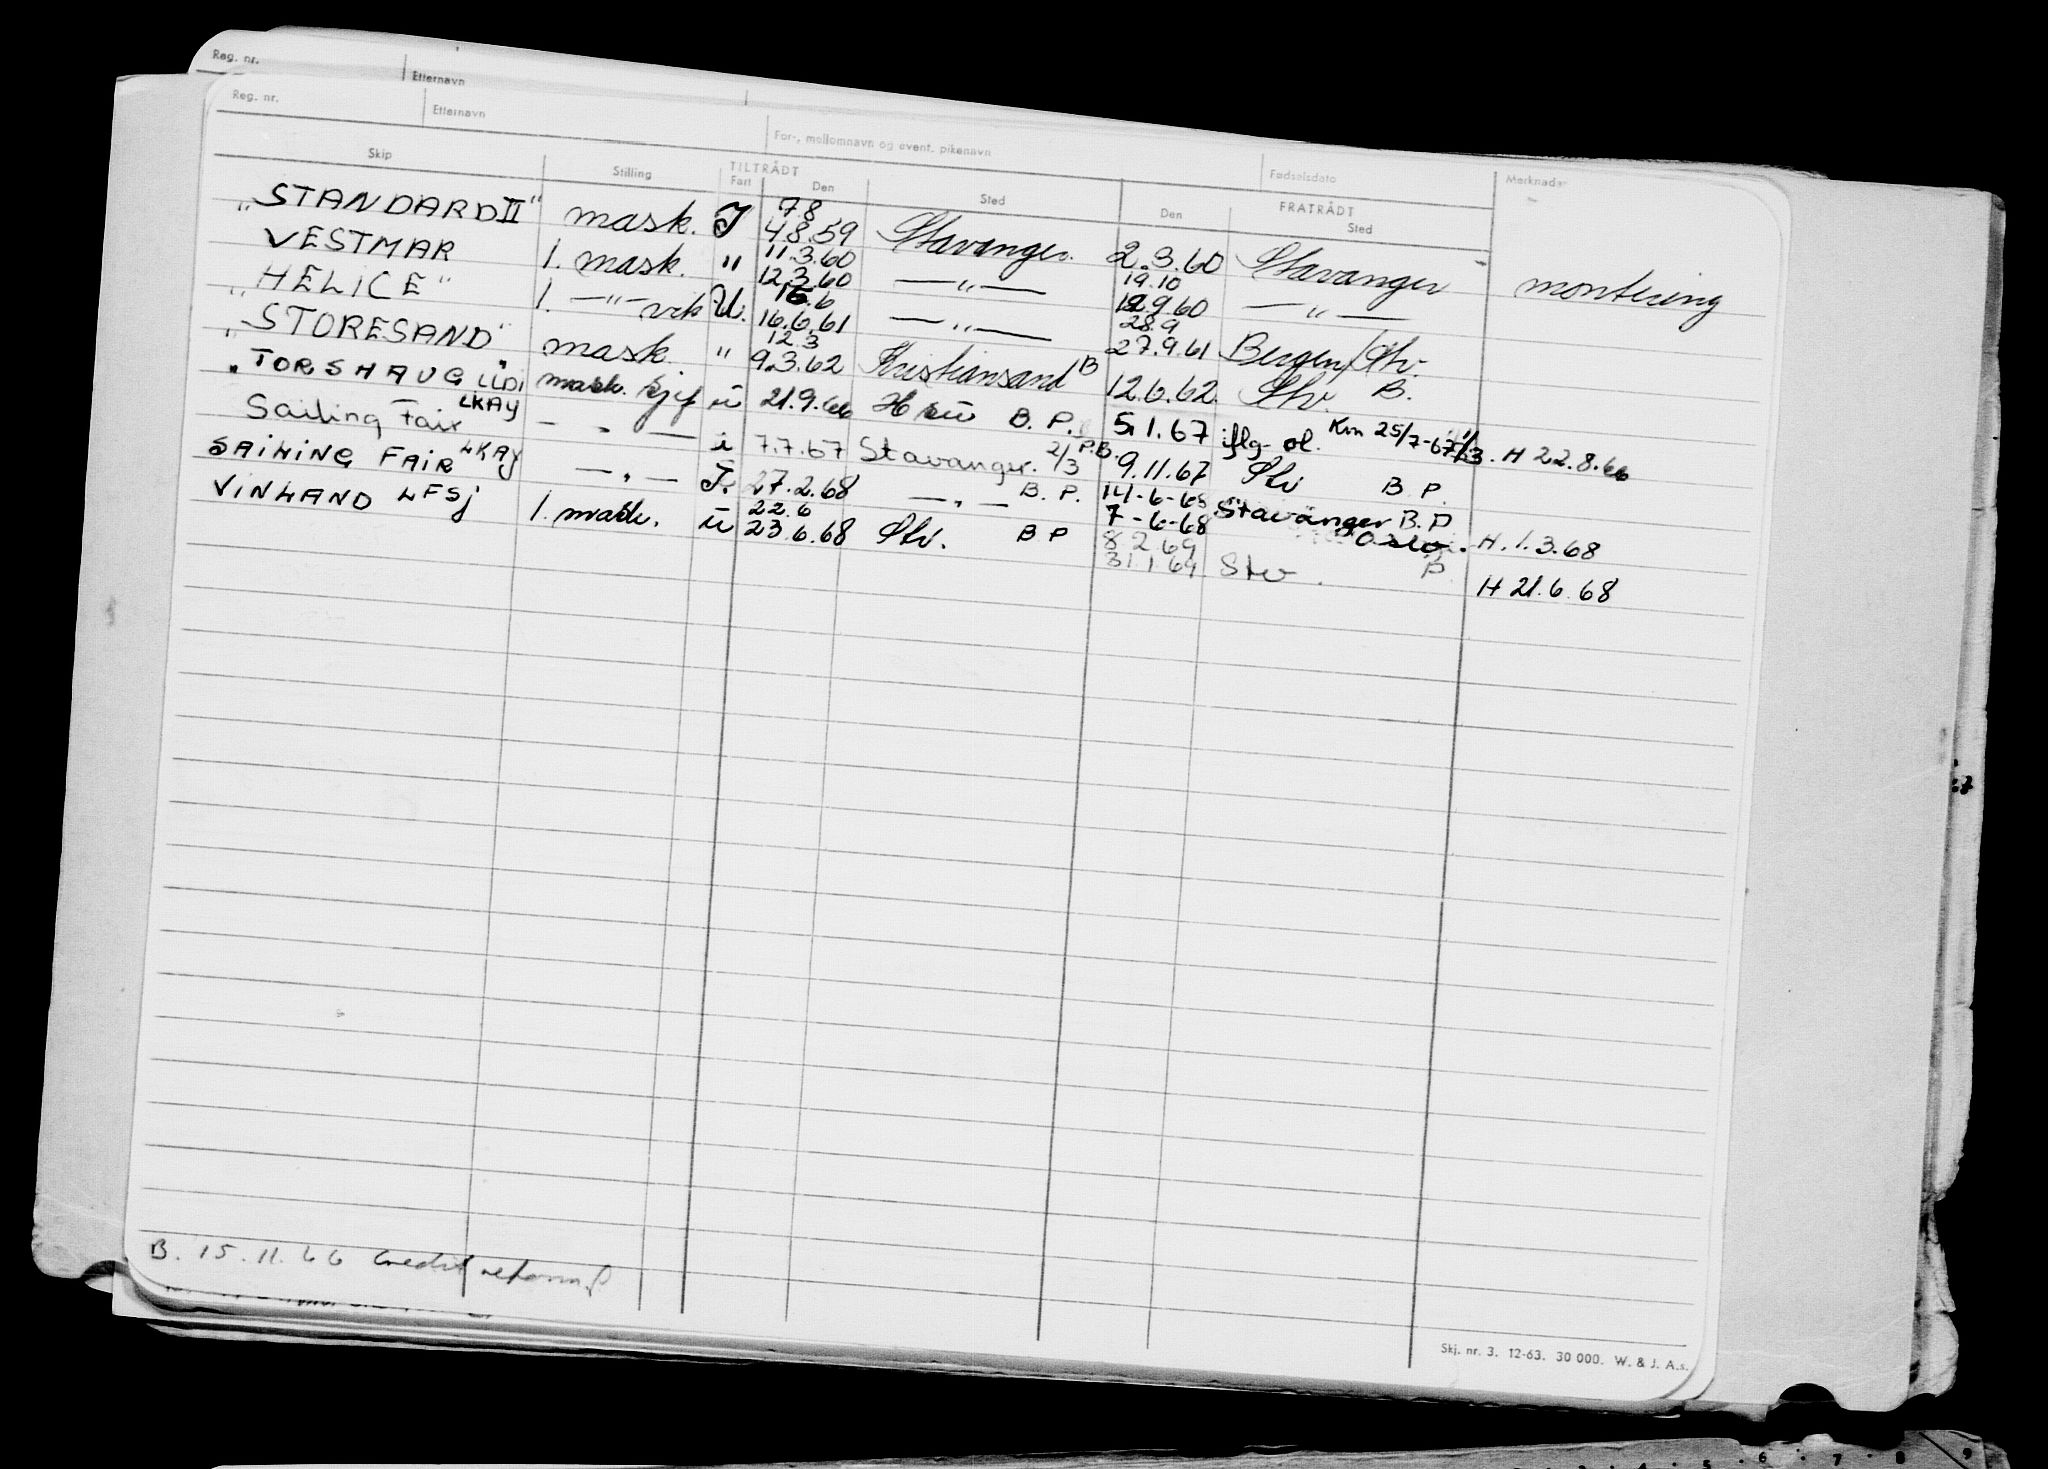 Reg. nr. Etternavn
Reg. nr. Etternavn For-, mellomnavn og event. pikenavn Fødselsdato Merknader
Skip Stilling TILTRÅDT FRATRÅDT
Fart Den Sted Den Sted
"STANDARD II" mask. I 7 8 4.8.59 Stavanger. 2.3.60 Stavanger montering
VESTMAR 1. mask. " 11.3.60 12.3.60 — " — 19.10 9.60 — " —
"HELICE" 1. — " — vik U. 16.6.61 — " — 28.9 27.9.61 Bergen/Stv.
"STORESAND" mask " 12.3 9.3.62 Kristiansand B 12.6.62. Stv. B.
"TORSHAUG" LLDI mask. sjef u 21.9.66 B. P. 5.1.67 iflg. ol. Km 25/7-67 H 22.8.66
Sailing Fair LKAY — " — i 7.7.67 Stavanger. 2/3 P.B. 9.11.67 Stv B P.
SAILING FAIR LKAY — " — I. 27.2.68 — " — B. P. 14-6-68 7-6-68 Stavanger B.P Oslo. H. 1.3.68
VINLAND LFSJ 1. mask. u 22.6 23.6.68 Stv. B P 8.2.69 31.1.69 Stv. P H 21.6.68
B. 15.11.66 Credit reform
Skj. nr. 3. 12-63. 30 000. W. & J. A.s.
6 7 8 9